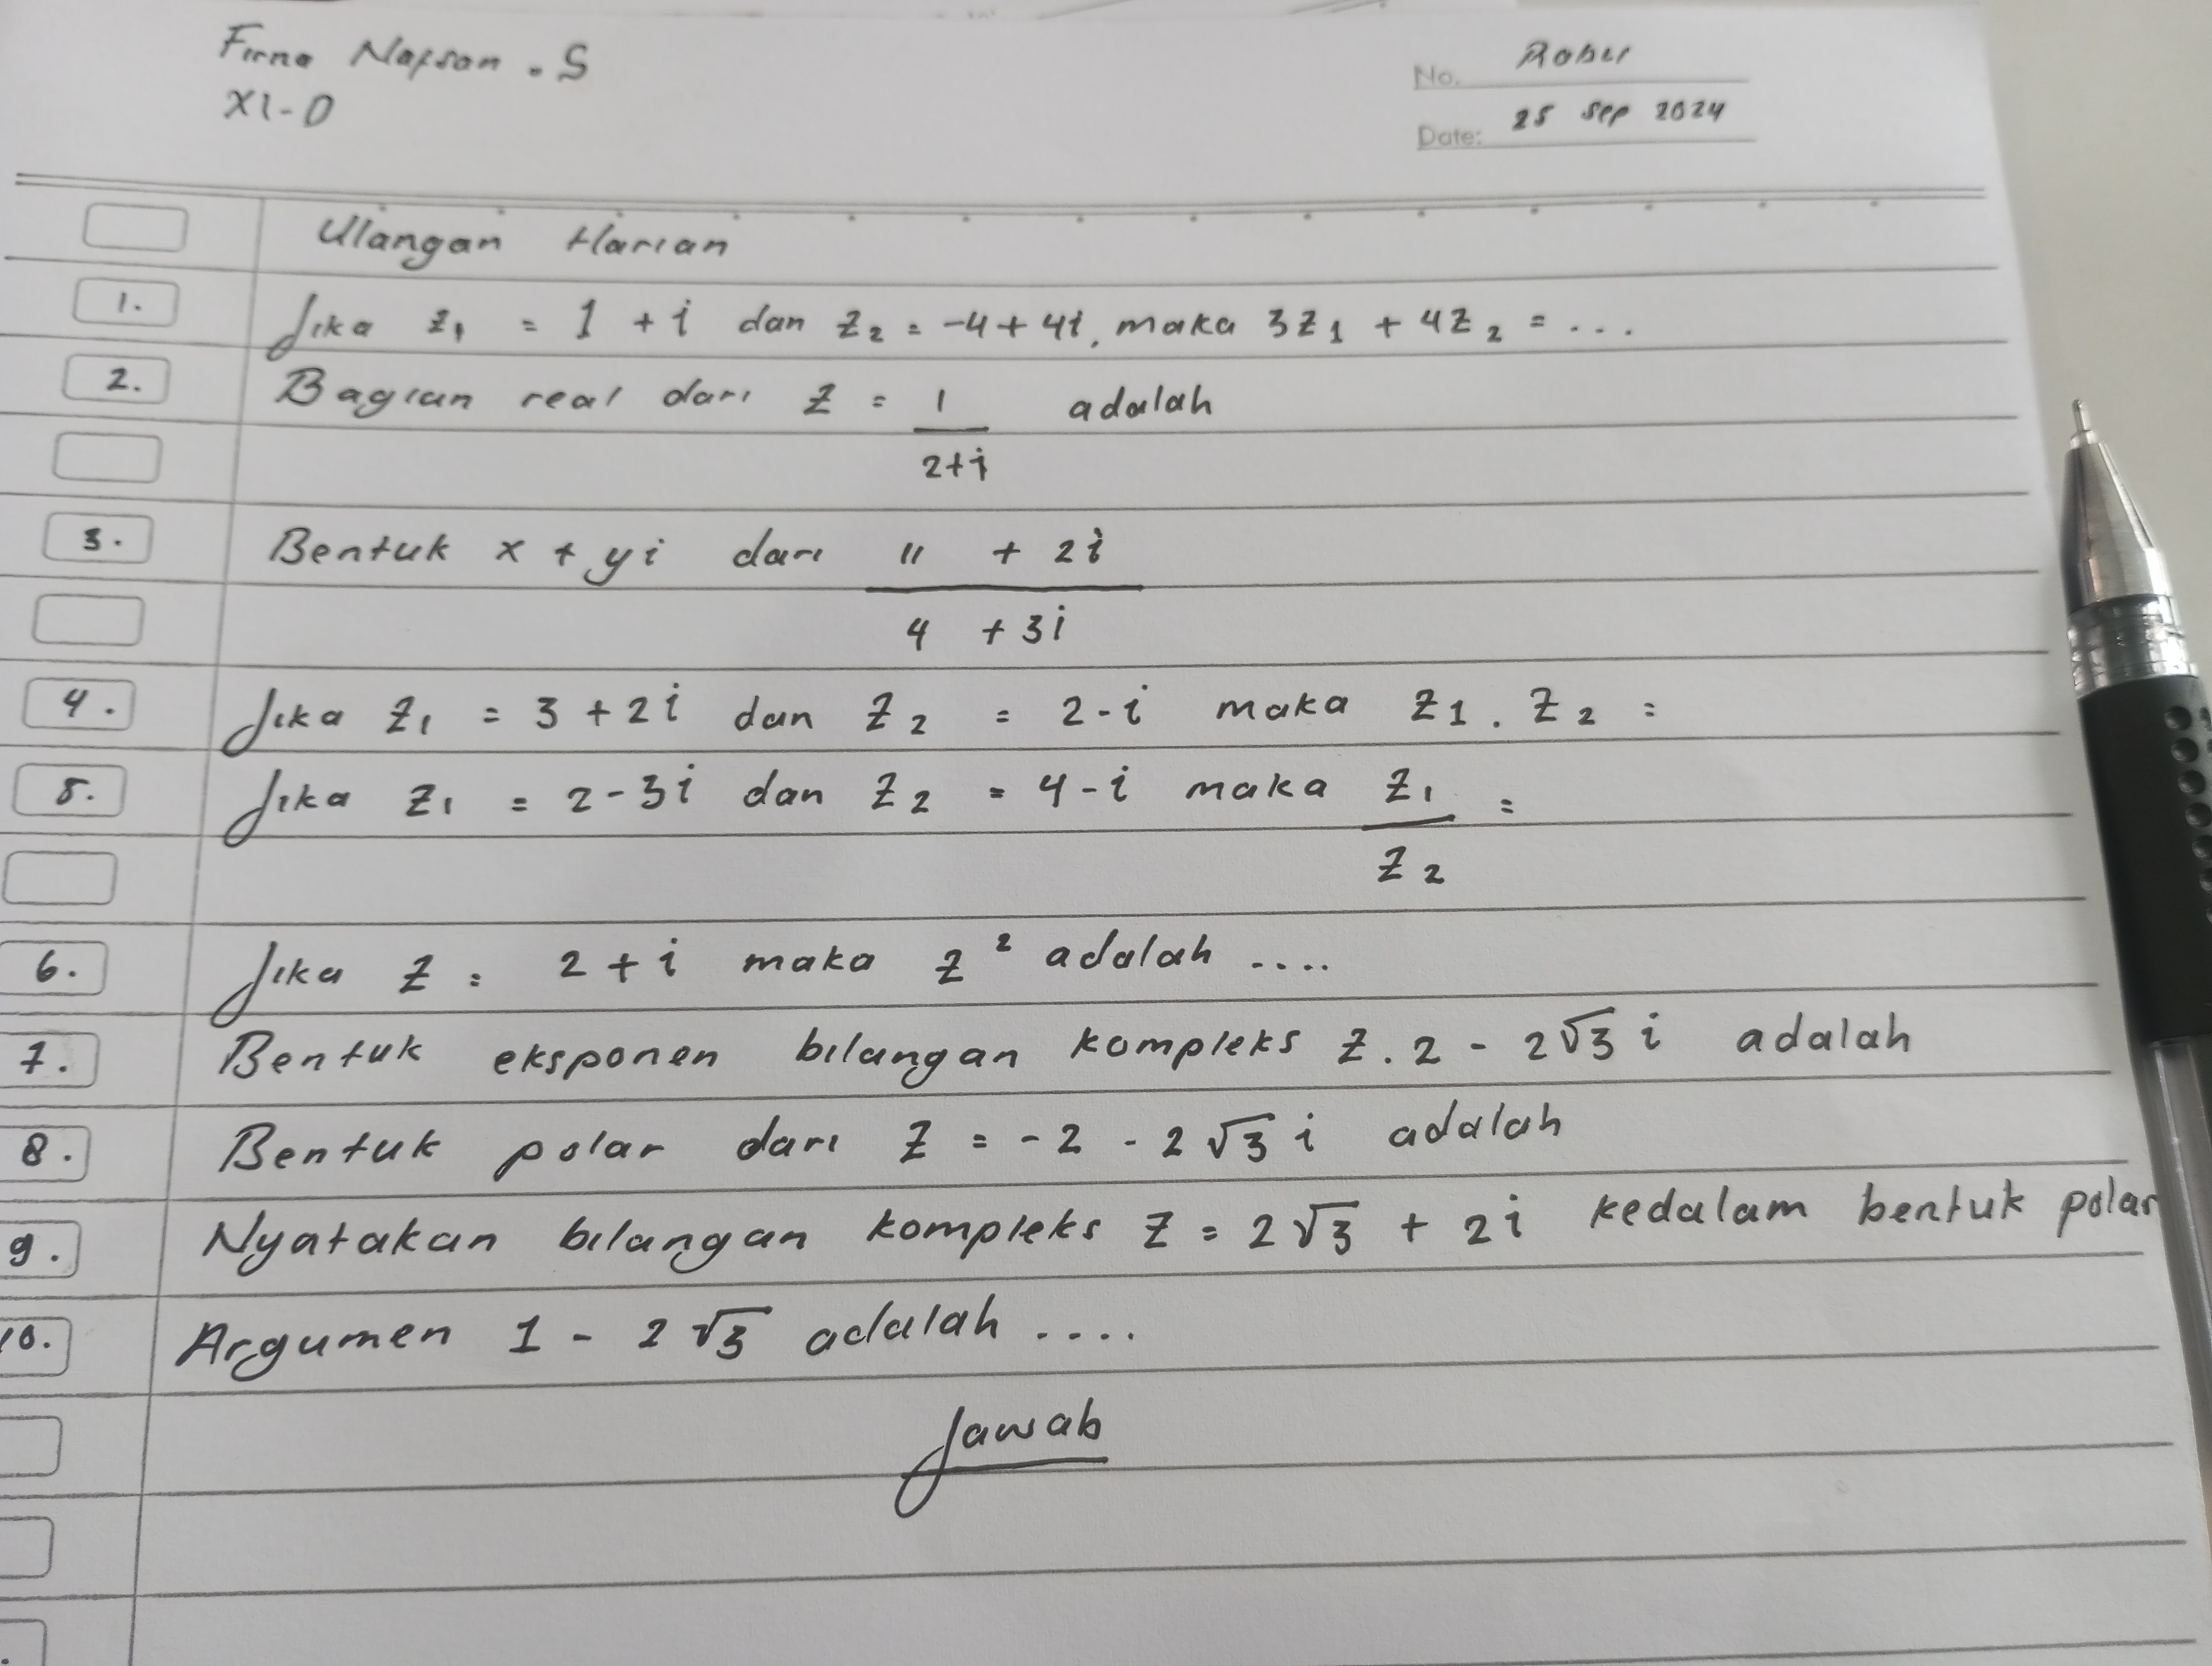 Firna Nafsan . S
XI-D
No. Rabu
Date: 25 Sep 2024
Ulangan Harian
1. Jika z₁ = 1 + i dan z₂ = -4 + 4i, maka 3z₁ + 4z₂ = ...
2. Bagian real dari z = 1 adalah
2+i
3. Bentuk x + yi dari 11 + 2i
4 + 3i
4. Jika z₁ = 3 + 2i dan z₂ = 2 - i maka z₁ . z₂ =
5. Jika z₁ = 2 - 3i dan z₂ = 4 - i maka z₁ =
z₂
6. Jika z = 2 + i maka z² adalah ....
7. Bentuk eksponen bilangan kompleks z . 2 - 2√3 i adalah
8. Bentuk polar dari z = -2 - 2√3 i adalah
9. Nyatakan bilangan kompleks z = 2√3 + 2i kedalam bentuk polar
10. Argumen 1 - 2√3 adalah ....
Jawab